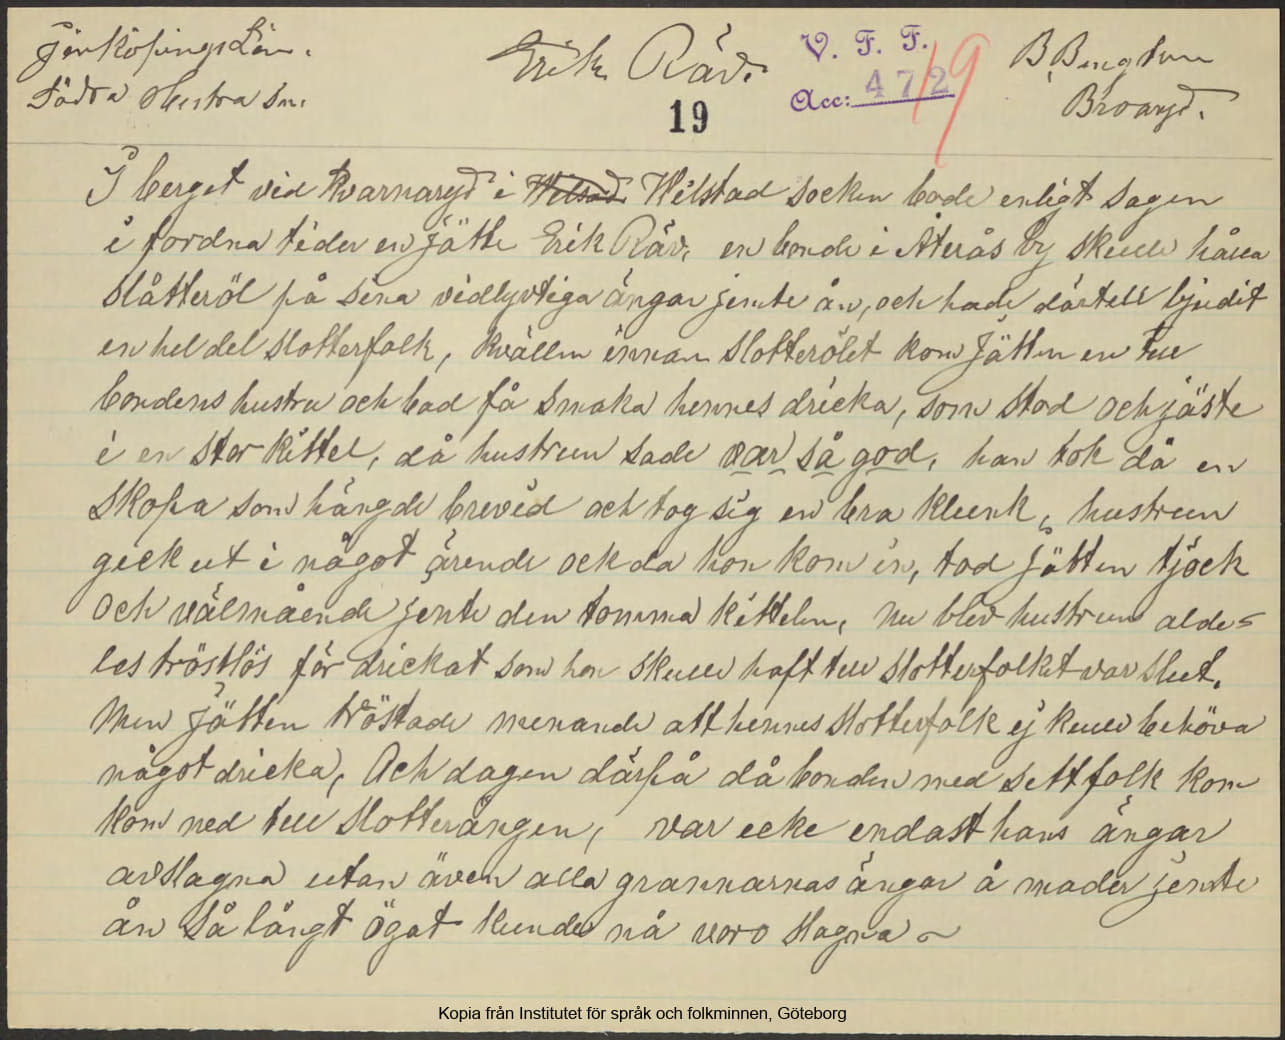 Jönköpings Län.
Södra Hestra Sn.
Erik Räv.
19
V. F. F.
Acc: 472
19
B. Bengtson
Broaryd.
I berget vid Kvarnaryd i Wilstad Wilstad socken bode enligt sagen
i fordna tider en Jätte Erik Räv, en bonde i Återås by skulle hålla
slåtteröl på sina vidlyvtiga ängar jemte ån, och hade därtill bjudit
en hel del slotterfolk, kvällen innan slotterölet kom Jätten en till
bondens hustru och bad få smaka hennes dricka, som stod och jäste
i en stor kittel, då hustrun sade var så god, han tok då en
skopa som hängde brevid och tog sig en bra klunk, hustrun
gick ut i något ärende och da hon kom in, tod Jätten tjöck
och välmående jemte den tomma kittelen, nu blev hustrun alde=
les tröstlös för drickat som hon skulle haft till slotterfolket var slut.
Men Jätten tröstade menande att hennes slotterfolk ej kulle behöva
något dricka, Och dagen därpå då bonden med sett folk kom
kom ned till slotterängen, var icke endast hans ängar
avslagna utan även alla grannarnas ängar å mader jemte
ån så långt ögat kunde nå voro slagna ~
Kopia från Institutet för språk och folkminnen, Göteborg